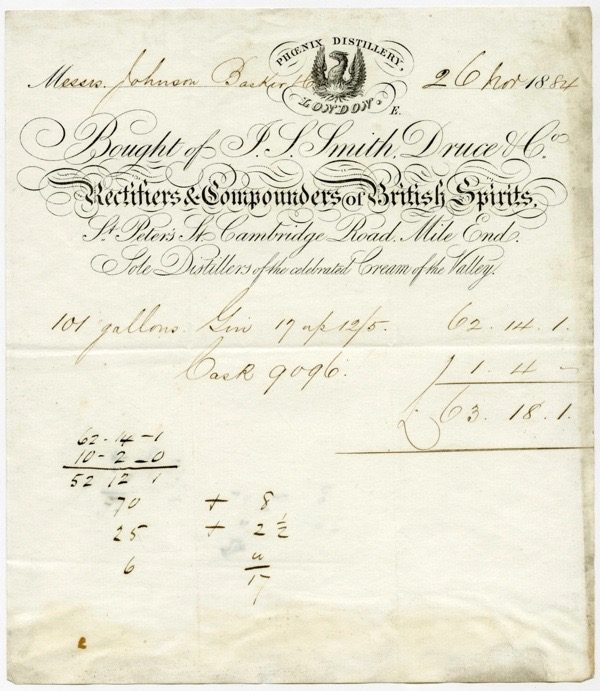 PHŒNIX DISTILLERY,
LONDON, E.
Messrs. Johnson Barker & Co 26 Nov 1884
Bought of J. S. Smith, Druce & Co.
Rectifiers & Compounders of British Spirits,
St. Peter's St. Cambridge Road, Mile End.
Sole Distillers of the celebrated Cream of the Valley.
101 gallons Gin 17 up 12/5. 62. 14. 1.
Cask 9096. 1. 4 -
£ 63. 18. 1.
62-14-1
10-2-0
52 12 1
70 + 8
25 + 2 ½
6
17